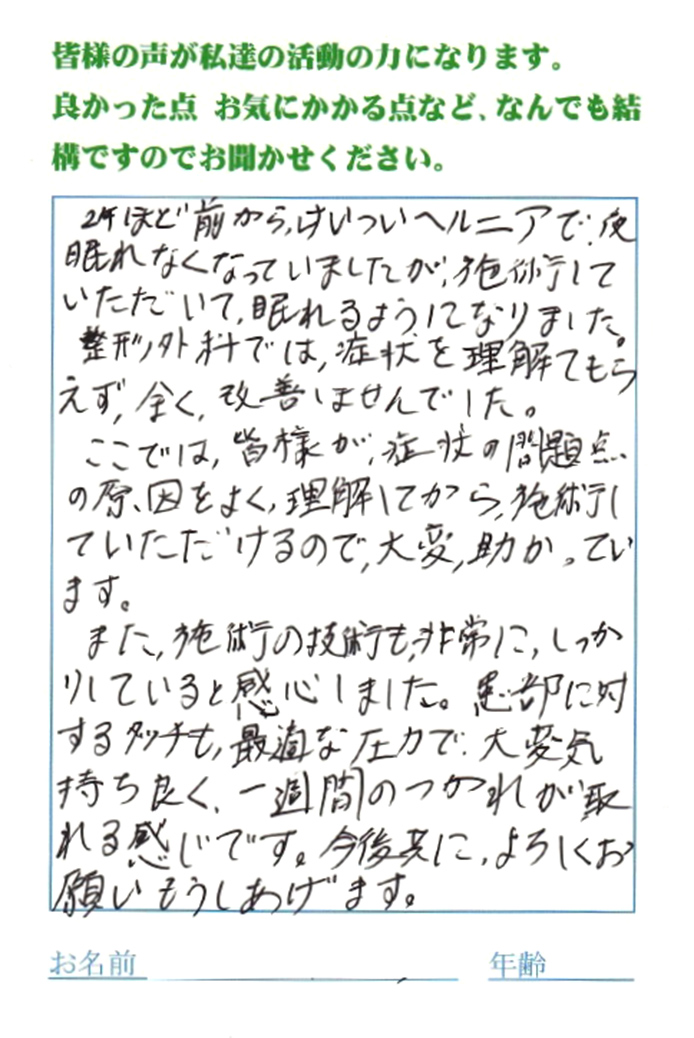 皆様の声が私達の活動の力になります。
良かった点 お気にかかる点など、なんでも結
構ですのでお聞かせください。
2年ほど前から、けいついヘルニアで、夜
眠れなくなっていましたが、施術して
いただいて、眠れるようになりました。
整形外科では、症状を理解てもら
えず、全く、改善しませんでした。
ここでは、皆様が、症状の問題点
の原因をよく、理解してから、施術し
ていただけるので、大変、助かってい
ます。
また、施術の技術も、非常に、しっか
りしていると感心しました。患部に対
するタッチも、最適な圧力で、大変気
持ち良く、一週間のつかれが取
れる感じです。今後共に、よろしくお
願いもうしあげます。
お名前 年齢